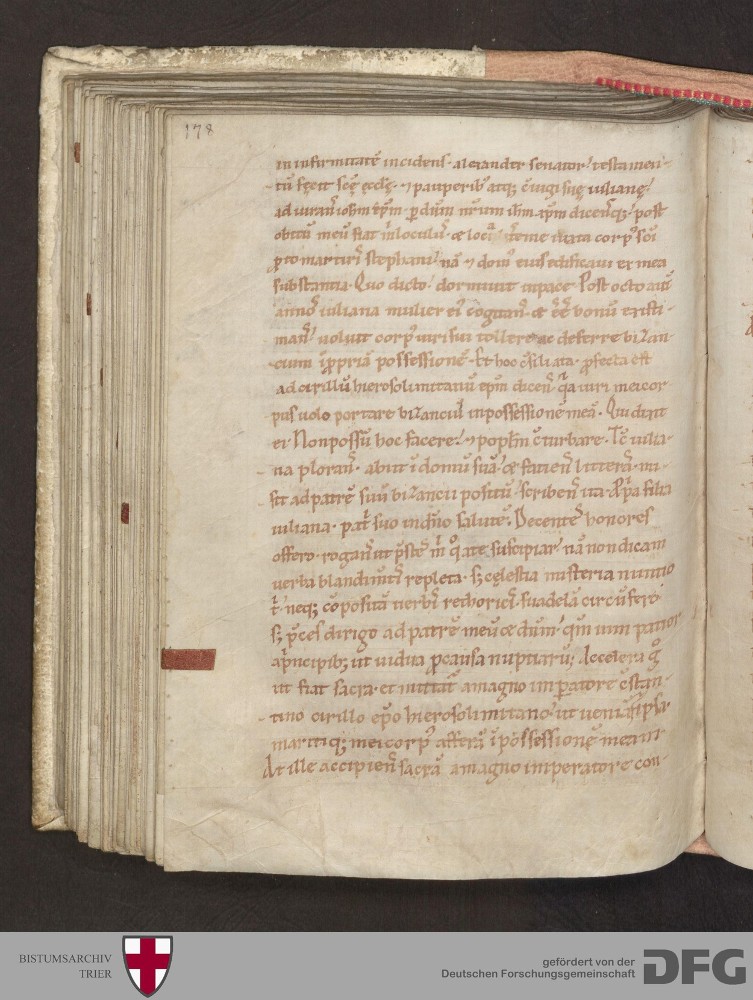 178
in infirmitatē incidens. alexander senator / testamen-
tū fecit scē ęcclę. ⁊ pauperib; atq; ōiugi suę iulianę /
ad iurans iohem epm. p dnm nrum ihm xpm dicensq; / post
obitū meū fiat m loculus. & loc
pto martiris stephani / nā ⁊ domū eius edificaui ex mea
substantia. Quo dicto / dormiuit inpace. Post octo aut̄
annos iuliana mulier ei' cogitans. &
uoluit corp' uiri sui tollere ac deferre bizan-
cium īppriā possessionē. Et hoc ōsiliata. pfecta est
ad cirillū hierosolimitanū epm dicens. q̄a uiri mei cor-
pus uolo portare bizanciū inpossessionē meā. Qui dixit
ei. Non possū hoc facere / ⁊ poplm ōturbare. Tc̄ iulia-
na plorans. abiit ī domū suā / & faciens litteras. mi-
sit ad patrē suū bizancii positū / scribens ita. filia
iuliana. patri suo salutē. Decentes honores
offero. rogans ut te suscipiar / nā non dicam
uerba blandimtis repleta. s; cęlestia misteria nuntio
t'. neq; cōpositā uerbis rethoricis suadelā circūfero.
s; pces dirigo ad patrē meū & dnm / qm uim patior
aprincipib; ut uidua p causa nuptiarū; Accelera g°
ut fiat sacra. et mittat' amagno impatore ōstan-
tino cirillo epo hierosolimitano / ut ueniā
maritiq; mei corp' afferā ī possessionē meam.
At ille accipiens sacrā amagno imperatore con-
BISTUMSARCHIV
TRIER
gefördert von der
Deutschen Forschungsgemeinschaft
DFG